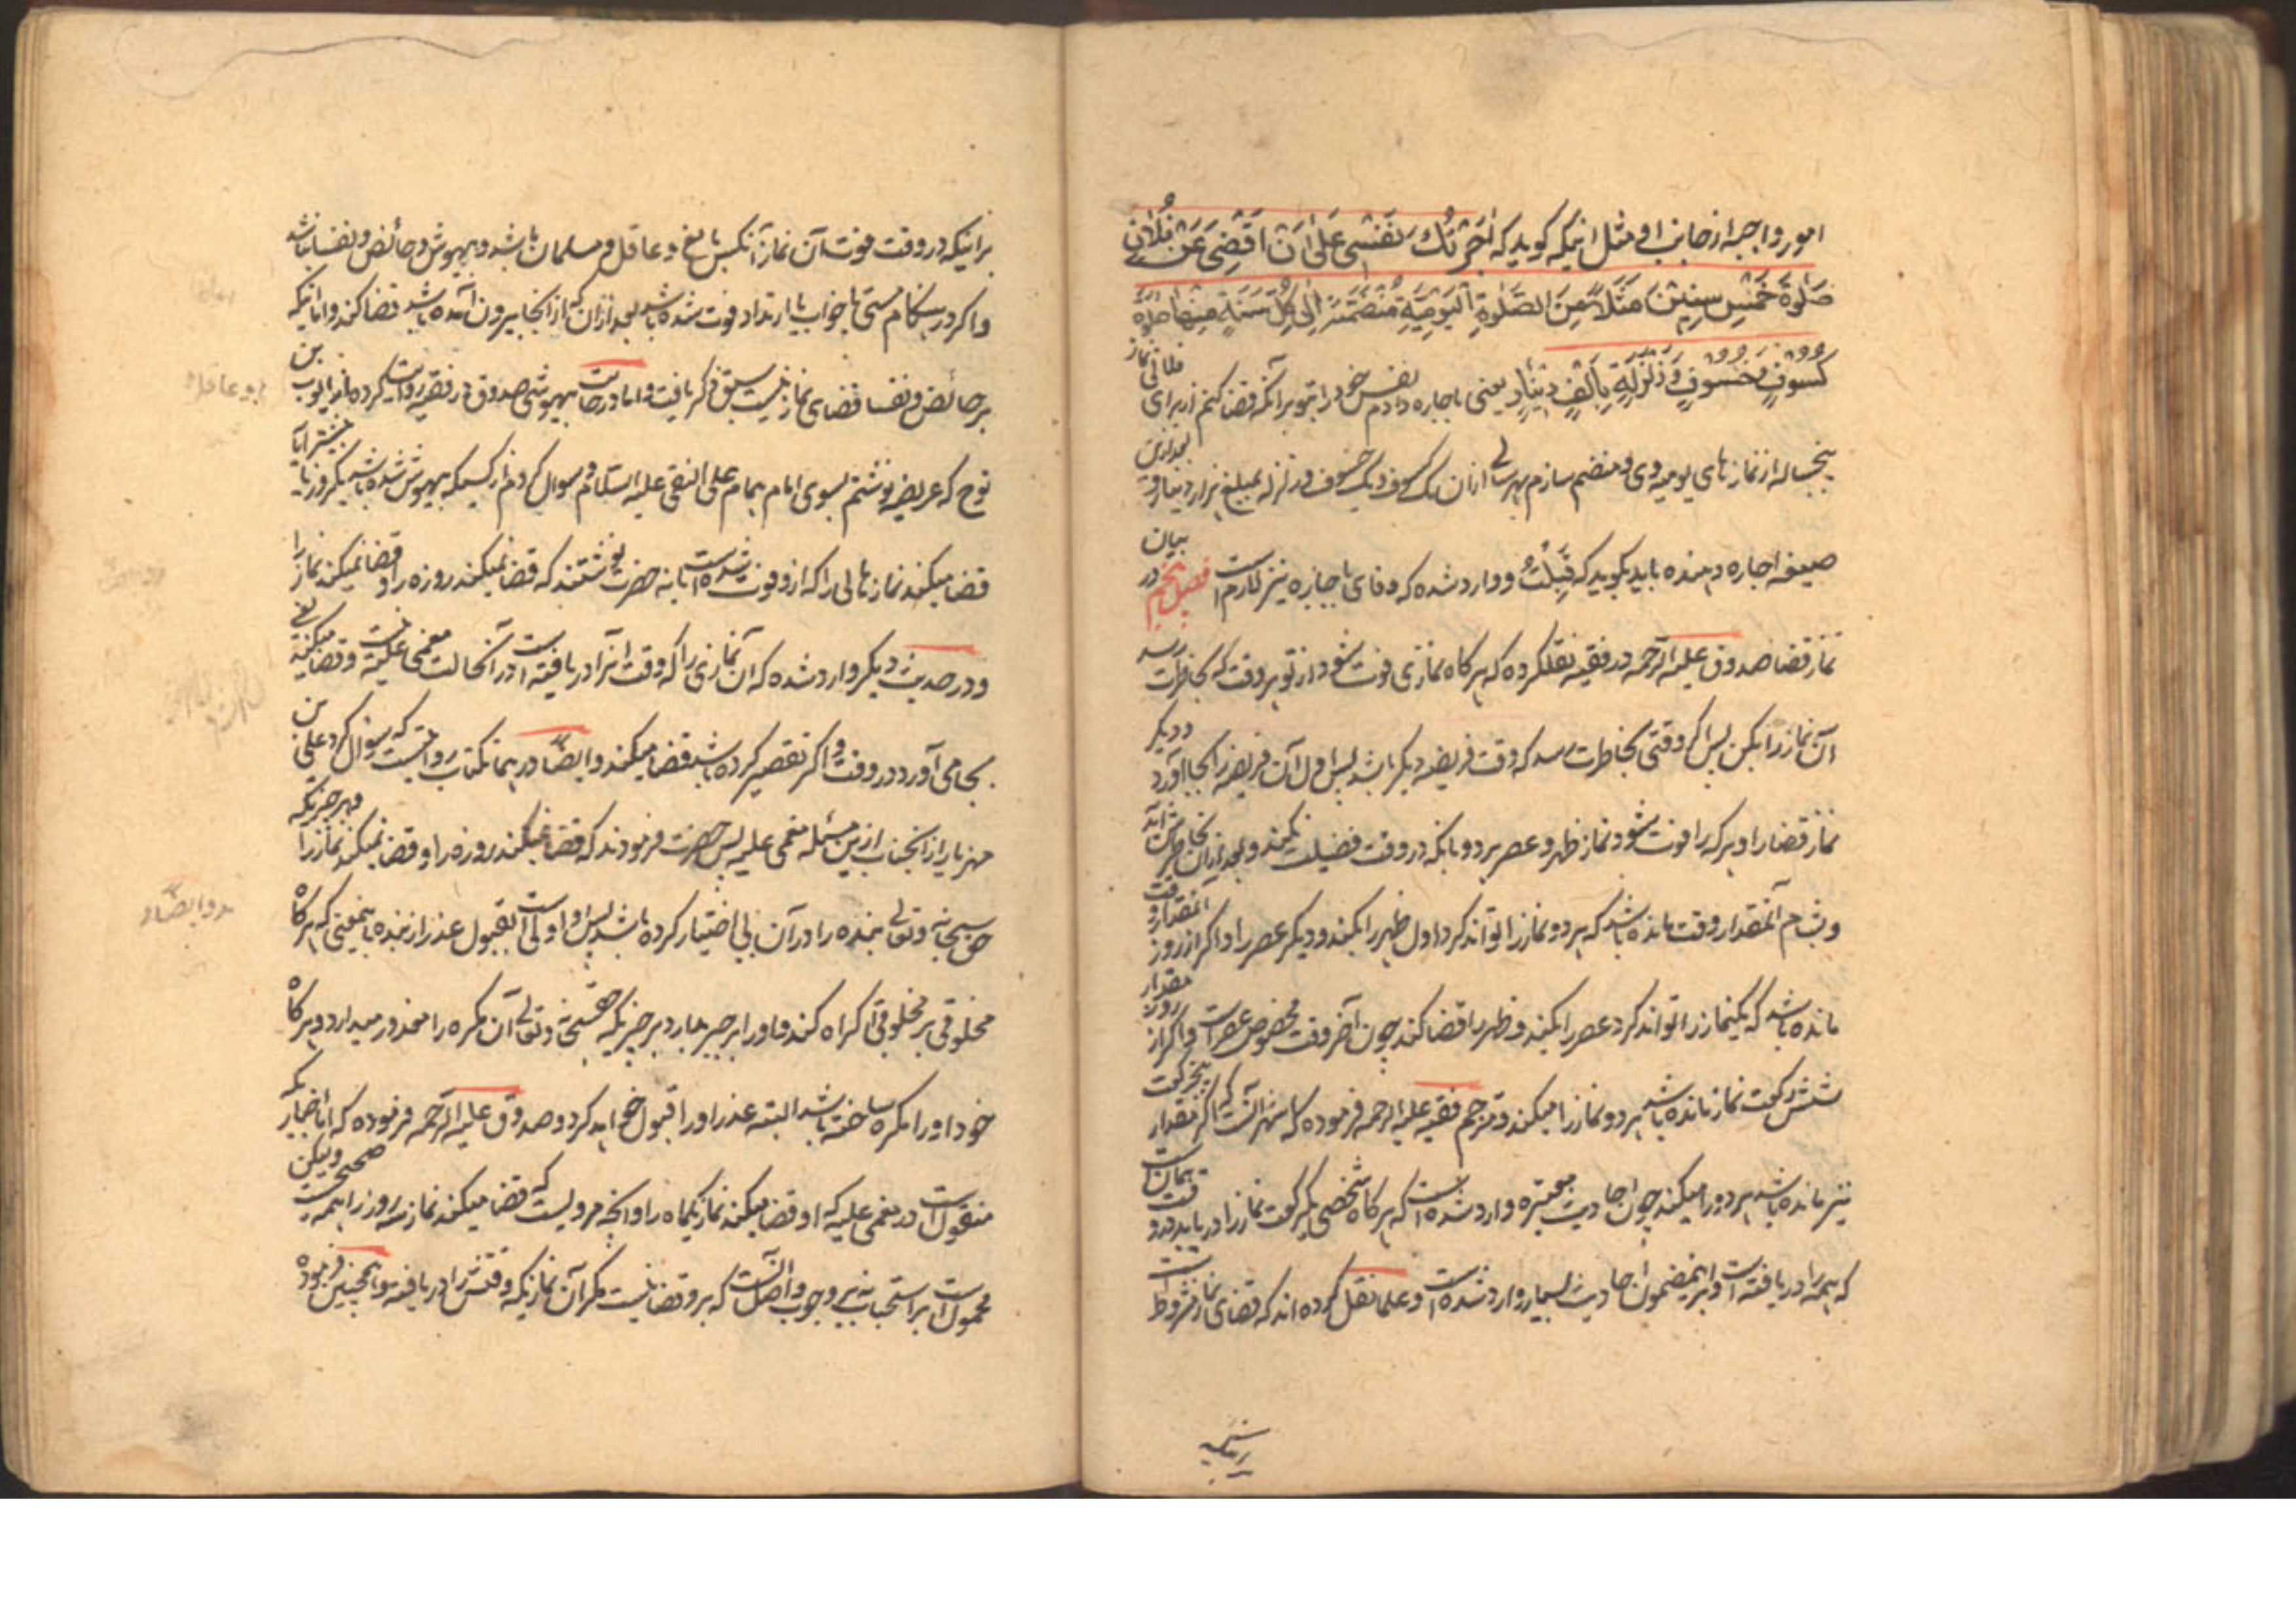 امور واجبه از جانب او مثل اینکه کوید که آجَرْتُكَ نَفْسِی عَلیٰ اَنْ اَقْضِیَ عَنْ فُلانٍ
صَلٰوةَ خَمْسِ سِنِیْنَ مَثَلاً مِنَ الصَّلٰوةِ الْیَوْمِیَّةِ مُنْضَمَّةً اِلیٰ کُلِّ سَنَةٍ مِنْها صَلٰوةُ
کُسُوفٍ وَخُسُوفٍ وَزَلْزَلَةٍ بِاَلْفِ دِیْنٰارٍ یعنی باجاره دادم نفس خود را بتو برآنکه قضا کنم از برای فلانی نماز
پنجساله از نمازهای یومیه و منضم سازم بهر سالی ازان یک کسوف و یک خسوف و زلزله بمبلغ هزار دینار و بعد ازین
صیغه اجاره دهنده باید بکوید که قَبِلْتُ و وارد شده که وفای باجاره نیز لازم است فصل پنجم در بیان
نماز قضا صدوق علیه الرحمه در فقیه نقلکرده که هرکاه نمازی فوت شود از تو هر وقت که بخاطرت رسد
آن نماز را بکن پس اکر وقتی بخاطرت رسد که وقت فریضه دیکر باشد پس اول آن فریضه را بجا آور و دیکر
نماز قضا را و هرکه را فوت شود نماز ظهر و عصر هر دو بانکه در وقت فضیلت نکند و بعد ازان بخاطرش آید
و بشام آنمقدار وقت مانده باشد که هر دو نماز را تواند کرد اول ظهر را بکند و دیکر عصر را و اکر از روز آنمقدار وقت
مانده باشد که یکنماز را تواند کرد عصر را بکند و ظهر را قضا کند چون آخر وقت مخصوص عصر است و اکر از روز مقدار
شش رکعت نماز مانده باشد هر دو نماز را میکند و مترجم فقیه علیه الرحمه فرموده که اشهر آنست که اکر مقدار پنجرکعت
نیز مانده باشد هر دو را میکند چون احادیث معتبره وارد شده است که هرکاه شخصی یکرکعت نماز را دریابد در وقت همان است
که همه را دریافته است و برینمضمون احادیث بسیار وارد شده است و علما نقل کرده اند که قضای نماز مشروط است
براینکه در وقت فوت آن نماز آنکس بالغ و عاقل و مسلمان باشد و بیهوش و حائض و نفسا نباشد
و اکر در هنکام مستی یا خواب یا ارتداد فوت شده باشد بعد ازان که از آنجا بیرون آمده باشد قضا کند و اما اینکه
بر حائض و نفسا قضای نماز نیست سبق ذکر یافت و اما در حالت بیهوشی صدوق در فقیه روایت کرده از ایوب بن
نوح که عریضه نوشتم بسوی امام همام علی النقی علیه السلام و سوال کردم از کسیکه بیهوش شده باشد یکروز یا بیشتر آیا
قضا میکند نمازهائی را که ازو فوت شده است یا نه حضرت نوشتند که قضا نمیکند روزه را و قضا نمیکند نماز را
و در حدیث دیکر وارد شده که آن نمازی را که وقت آنرا دریافته است در آنحالت مغمی علیه نیست و قضا میکند یعنی
بجا می آورد در وقت و اکر تقصیر کرده باشد قضا میکند و ایضاً در همانکتاب روایتست که سؤال کرد علی بن
مهزیار از آنجناب ازین مسئله مغمی علیه پس حضرت فرمودند که قضا نمیکند روزه را و قضا نمیکند نماز را و هر چیزیکه
حق سبحانه و تعالی بنده را در آن بی اختیار کرده باشد پس او اولی است بقبول عذر از بنده باینمعنی که هرکاه
مخلوقی بر مخلوقی اکراه کند و او را بر جبر بدارد بر چیزیکه حقسبحانه و تعالی آن مکره را معذور میدارد و هرکاه
خود او را مکره ساخته باشد البته عذر او را قبول خواهد کرد و صدوق علیه الرحمه فرموده که اما اخباریکه
منقول است در مغمی علیه که او قضا میکند نماز یکماه را و آنچه مرویست که قضا میکند نماز سه روز را همه صحیح است ولیکن
محمول است بر استحباب نه بر وجوب و اصل آنست که برو قضا نیست مکر آن نمازیکه وقتش را دریافته و همچنین فرموده